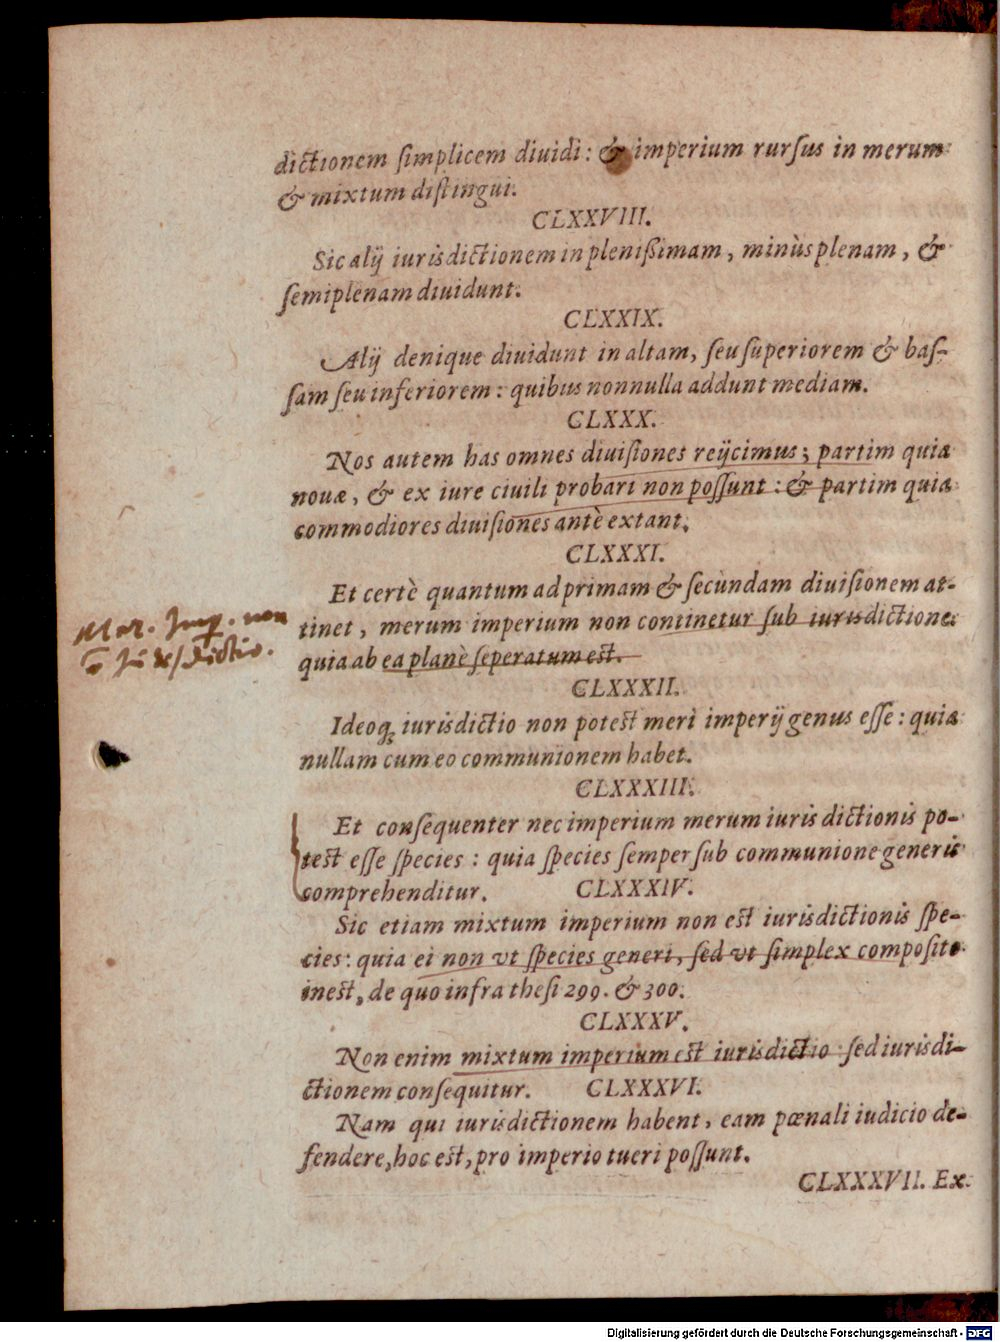 dictionem simplicem diuidi: & imperium rursus in merum
& mixtum distingui.
CLXXVIII.
Sic alij iurisdictionem in plenißimam, minùs plenam, &
semiplenam diuidunt.
CLXXIX.
Alij denique diuidunt in altam, seu superiorem & bas-
sam seu inferiorem: quibus nonnulla addunt mediam.
CLXXX.
Nos autem has omnes diuisiones reijcimus; partim quia
nouæ, & ex iure ciuili probari non possunt: & partim quia
commodiores diuisiones antè extant.
CLXXXI.
Et certè quantum ad primam & secùndam diuisionem at-
tinet, merum imperium non continetur sub iurisdictione:
quia ab ea planè seperatum est.
Mer. Imp. non
dictio.
CLXXXII.
Ideoq́; iurisdictio non potest meri imperij genus esse: quia
nullam cum eo communionem habet.
CLXXXIII.
Et consequenter nec imperium merum iurisdictionis po-
test esse species: quia species semper sub communione generis
comprehenditur. CLXXXIV.
Sic etiam mixtum imperium non est iurisdictionis spe-
cies: quia ei non vt species generi, sed vt simplex composito
inest, de quo infra thesi 299. & 300.
CLXXXV.
Non enim mixtum imperium est iurisdictio: sed iurisdi-
ctionem consequitur. CLXXXVI.
Nam qui iurisdictionem habent, eam pœnali iudicio de-
fendere, hoc est, pro imperio tueri possunt.
CLXXXVII. Ex
Digitalisierung gefördert durch die Deutsche Forschungsgemeinschaft - DFG